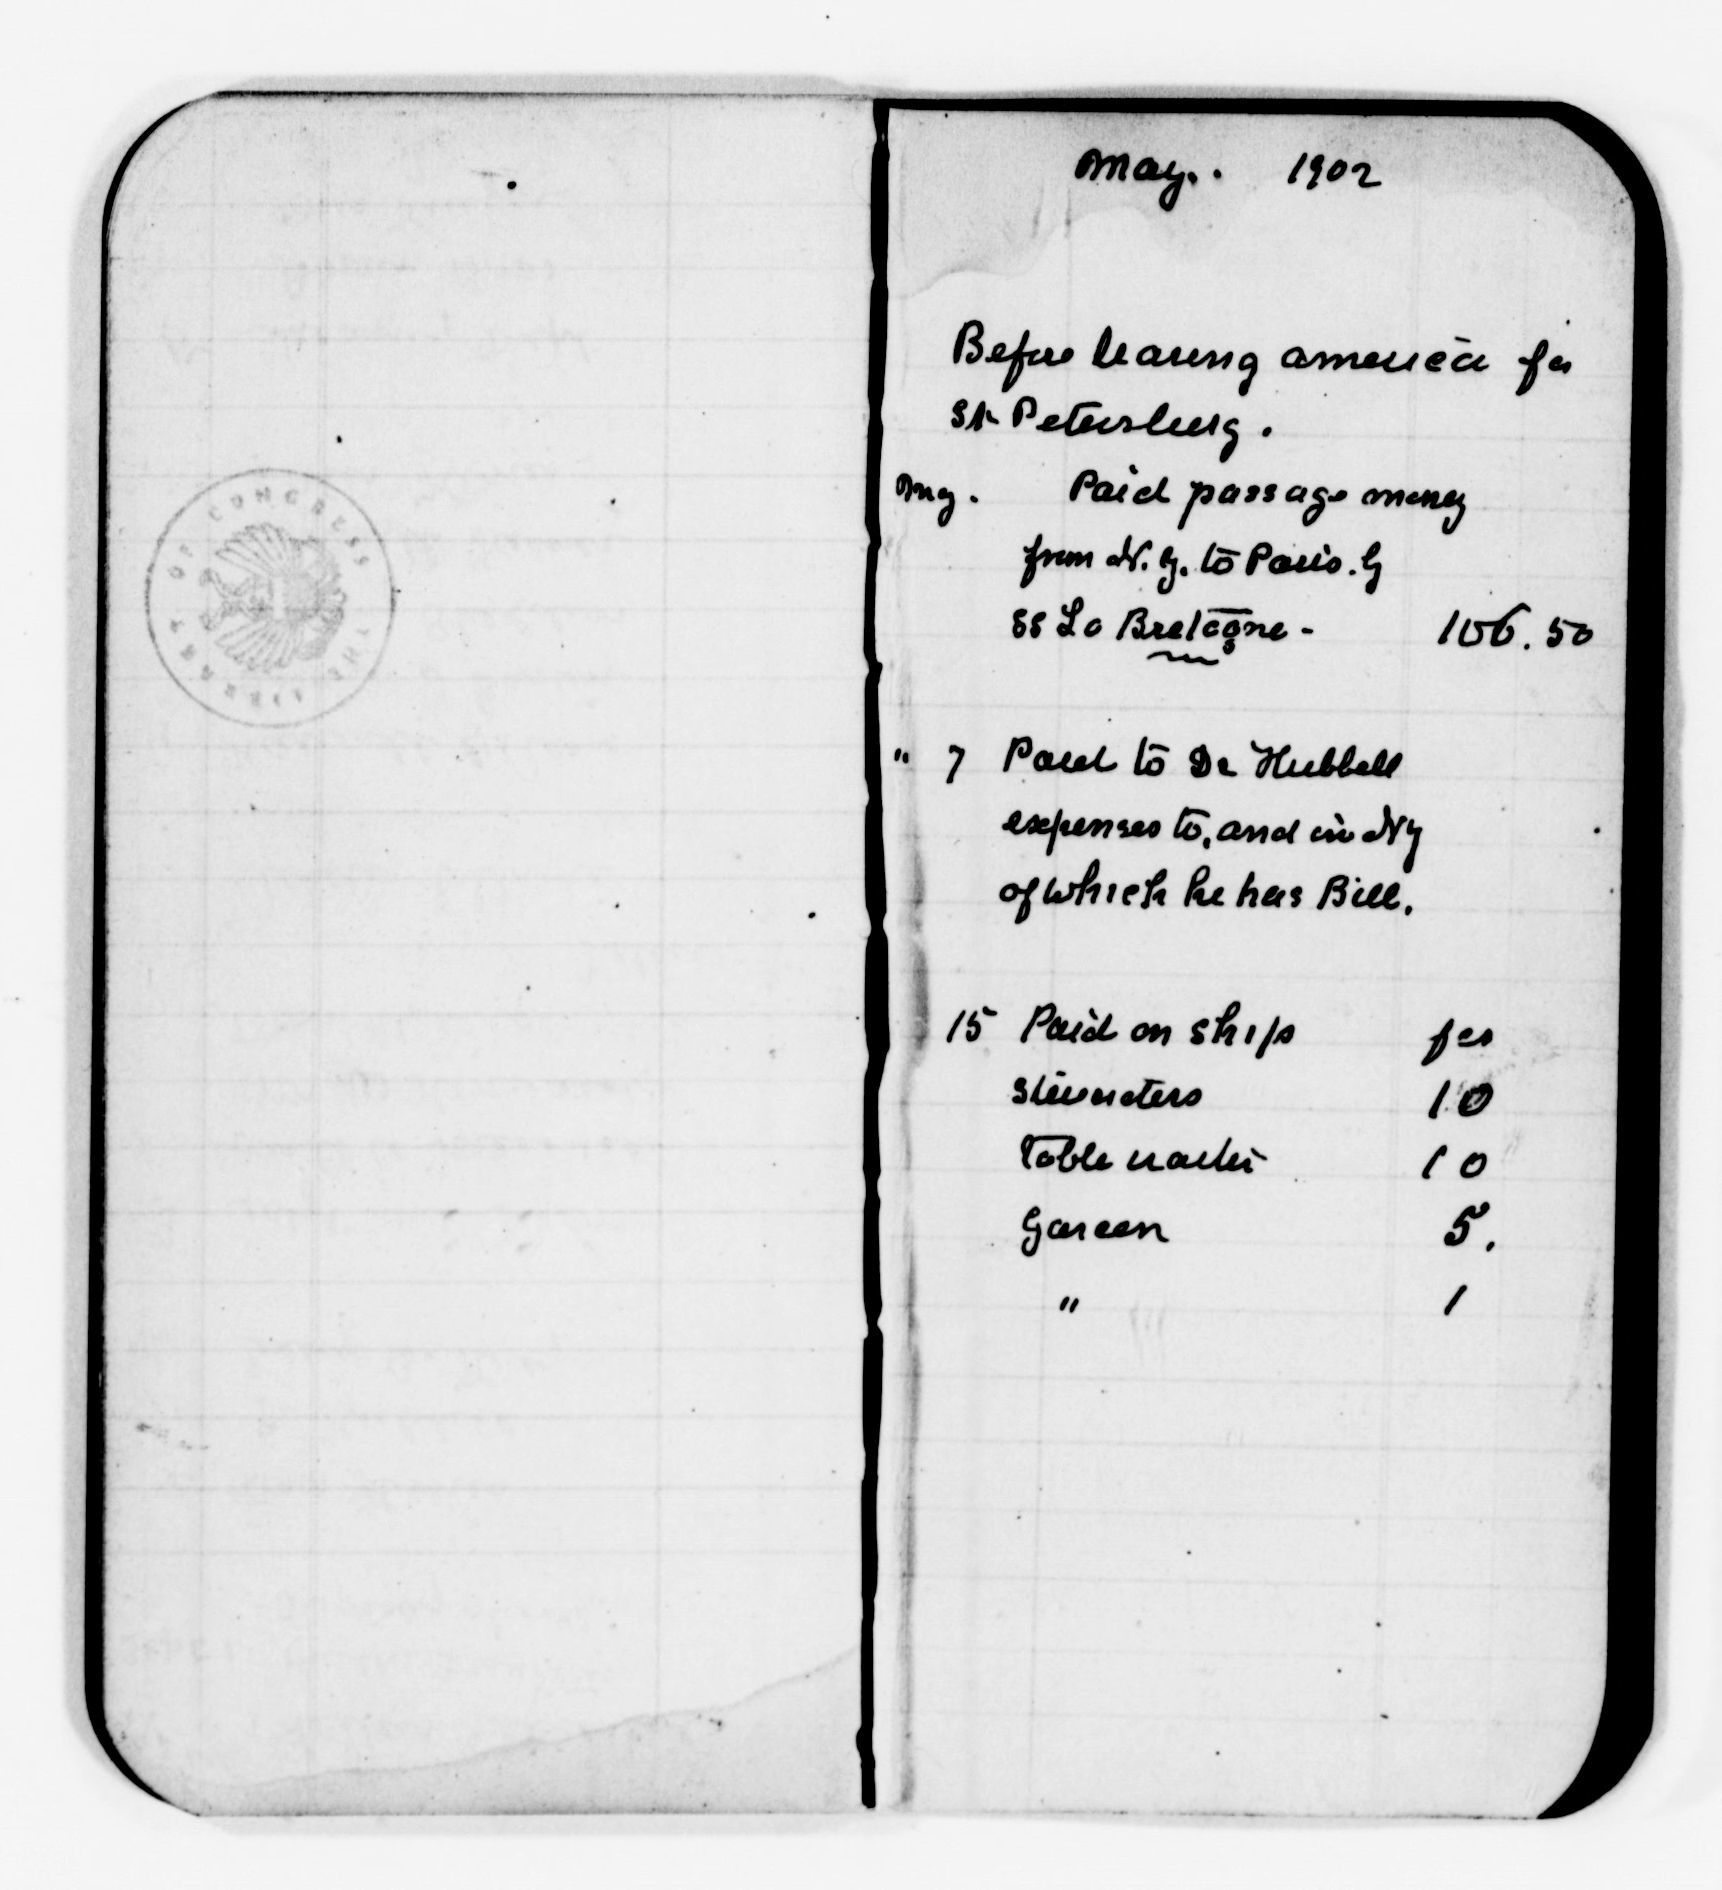 THE LIBRARY OF CONGRESS
May. . 1902
Before leaving america for
St Petersburg .
May . Paid passage money
from N. Y. to Paris. by
SS La Bretagne - 106.50
" 7 Paid to Dr Hubbell
expenses to, and in NY
of which he has Bill.
15 Paid on ship fcs
10
Table waiter 10
Garcen 5.
" 1